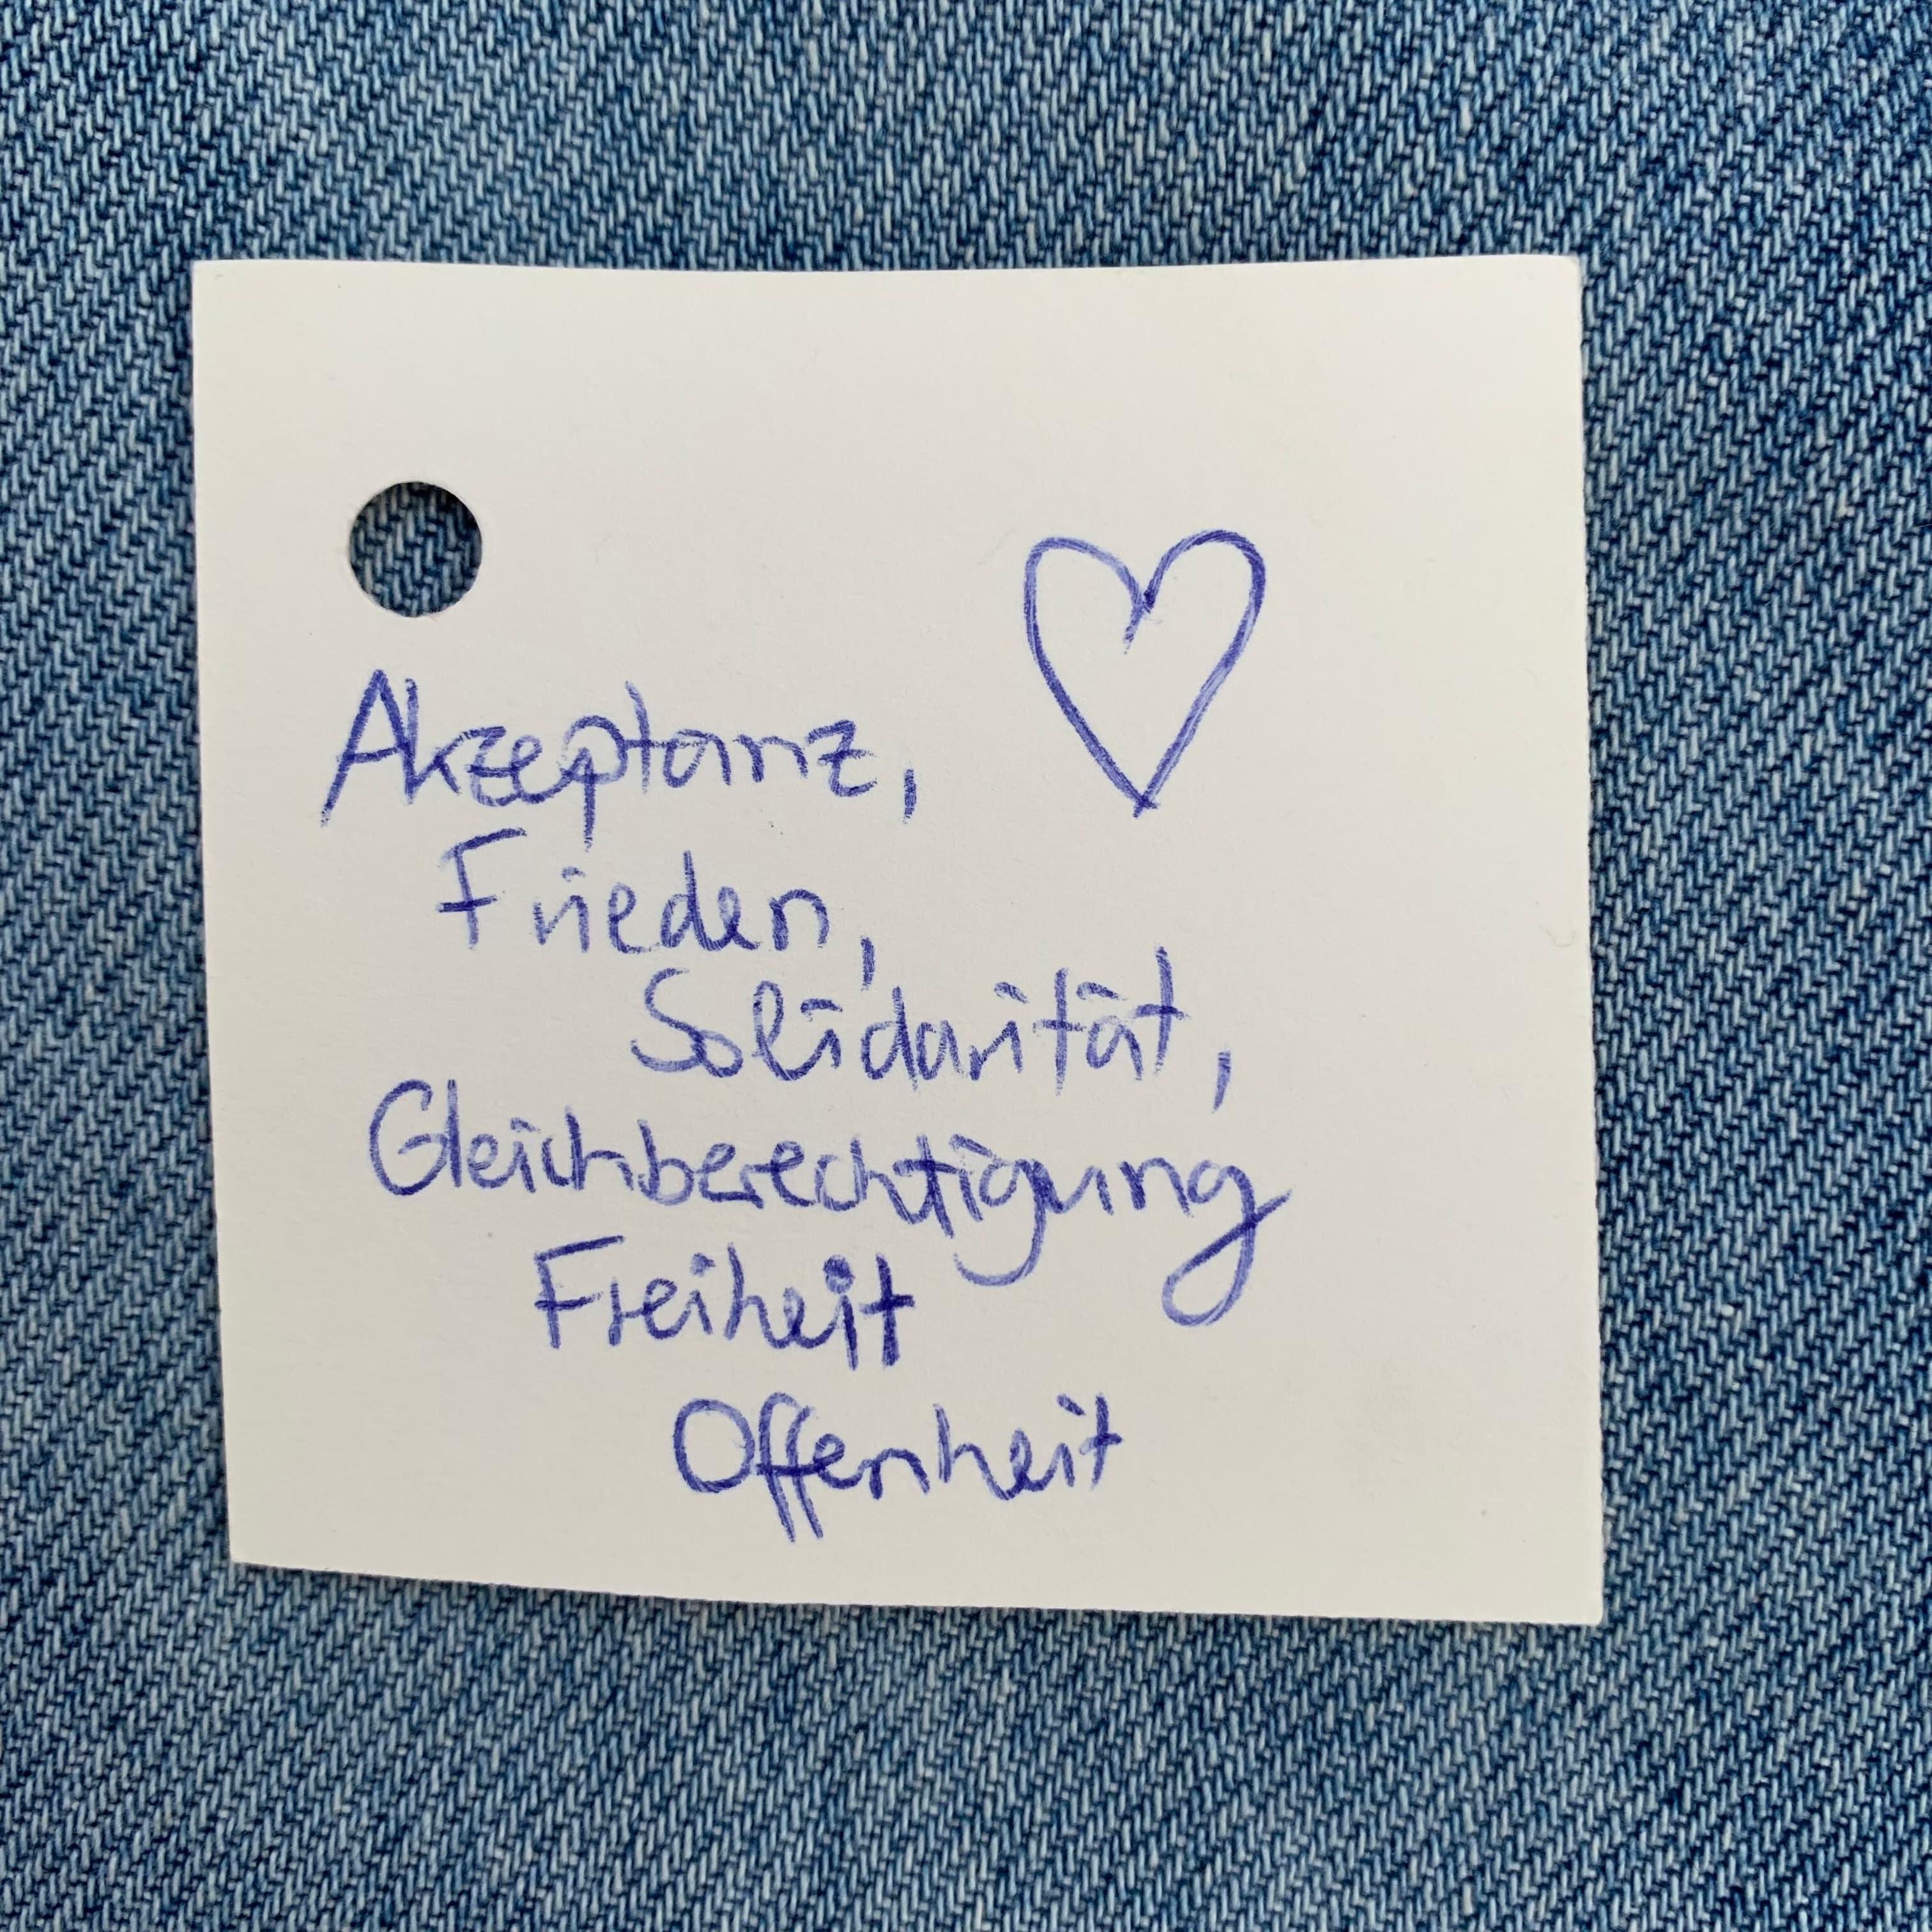 Akzeptanz,
Frieden,
Solidarität,
Gleichberechtigung
Freiheit
Offenheit